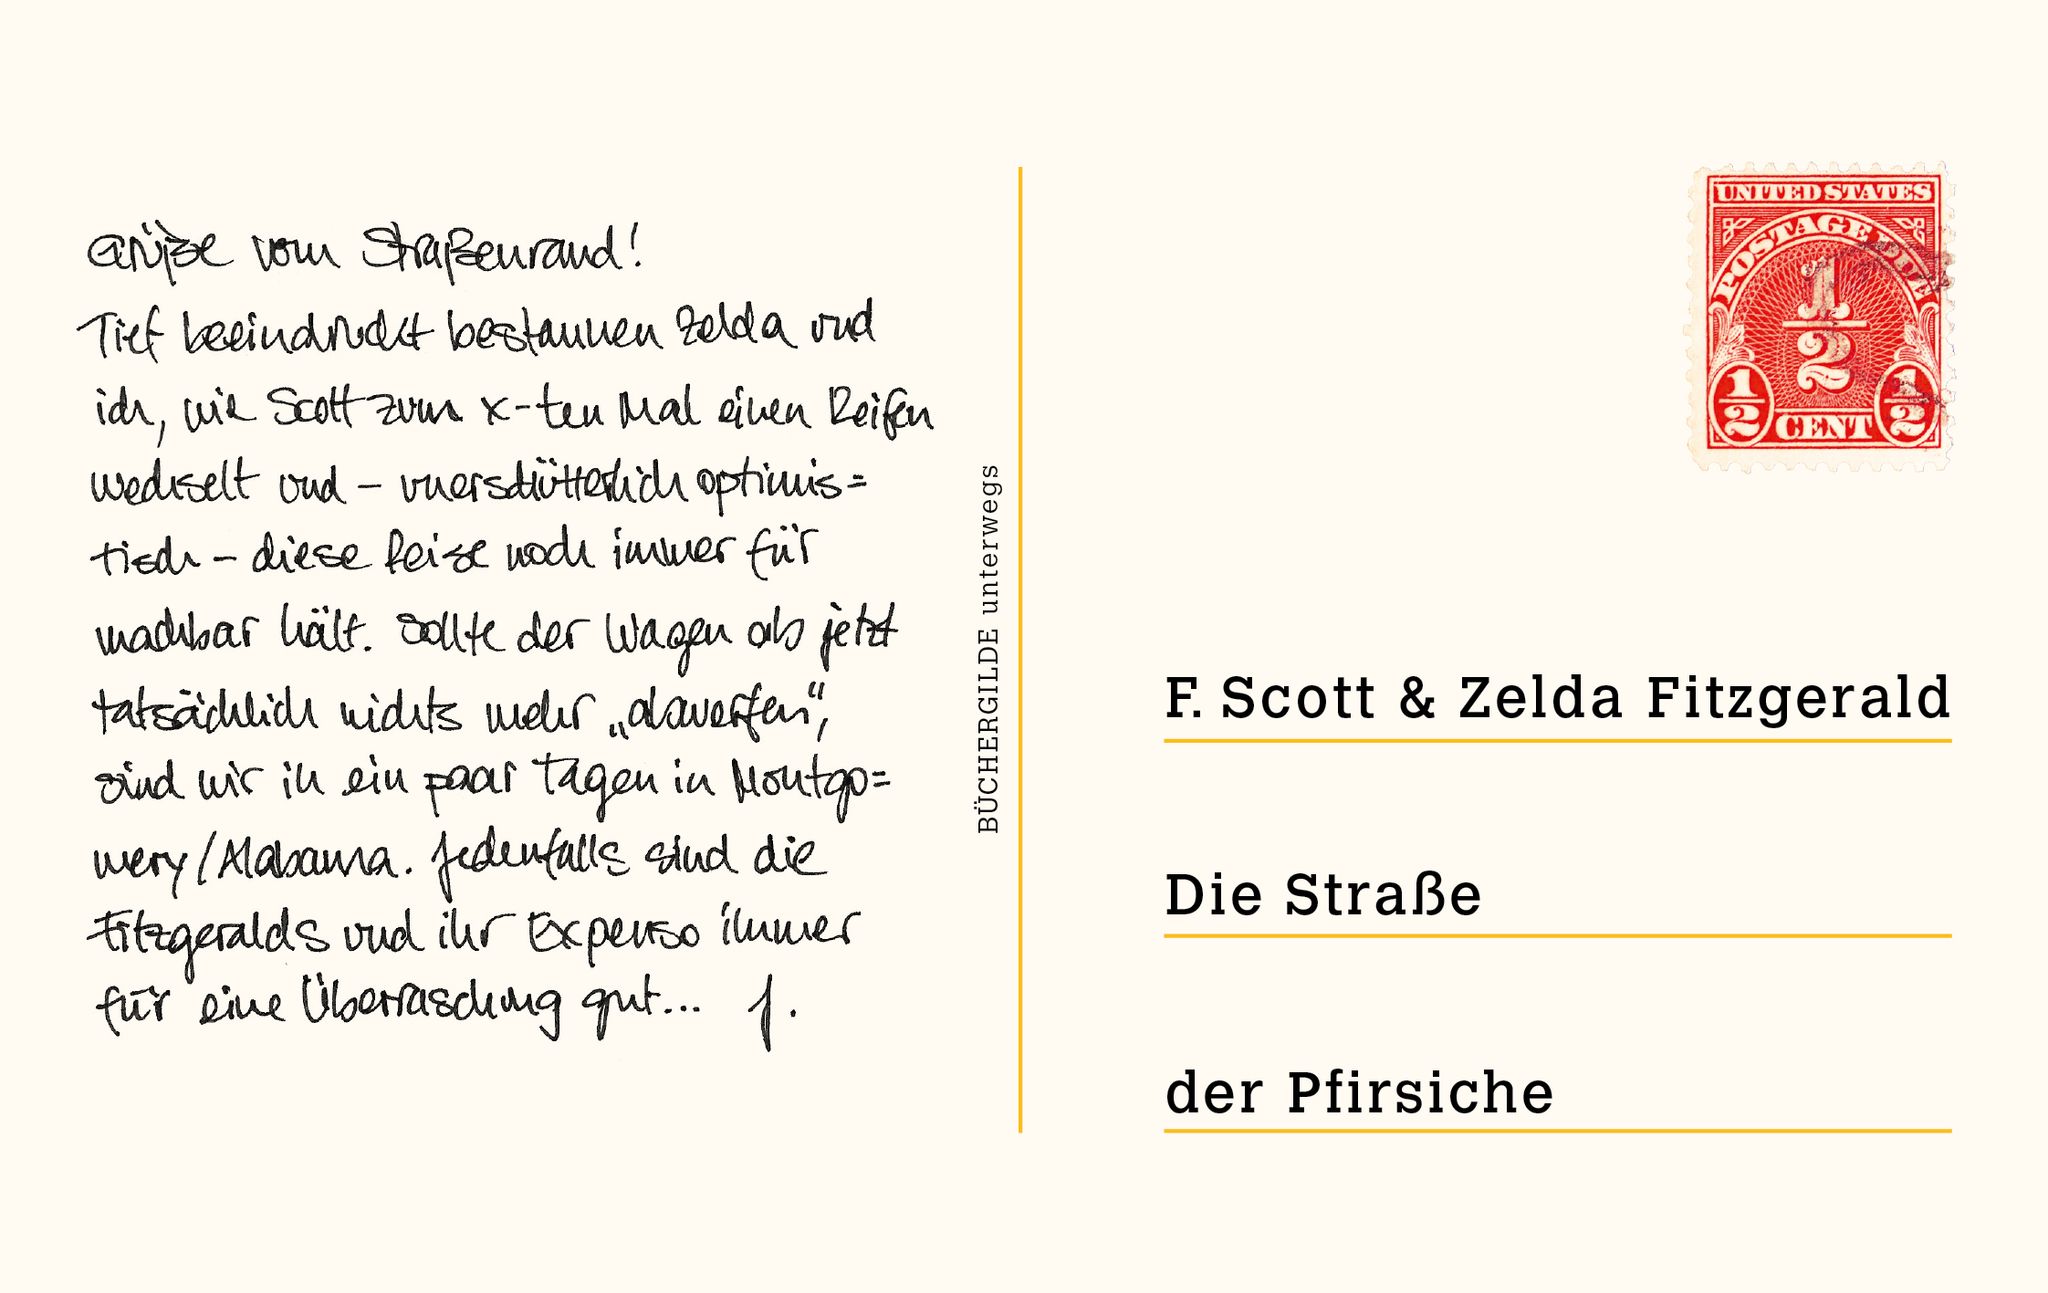 Grüße vom Straßenrand!
Tief beeindruckt bestaunen Zelda und
ich, wie Scott zum x-ten Mal einen Reifen
wechselt und – unerschütterlich optimis=
tisch – diese Reise noch immer für
machbar hält. Sollte der Wagen ab jetzt
tatsächlich nichts mehr „abwerfen“,
sind wir in ein paar Tagen in Montgo=
mery/Alabama. Jedenfalls sind die
Fitzgeralds und ihr Expenso immer
für eine Überraschung gut... J.
BÜCHERGILDE unterwegs
UNITED STATES
POSTAGE DUE
1/2
1/2 CENT 1/2
F. Scott & Zelda Fitzgerald
Die Straße
der Pfirsiche